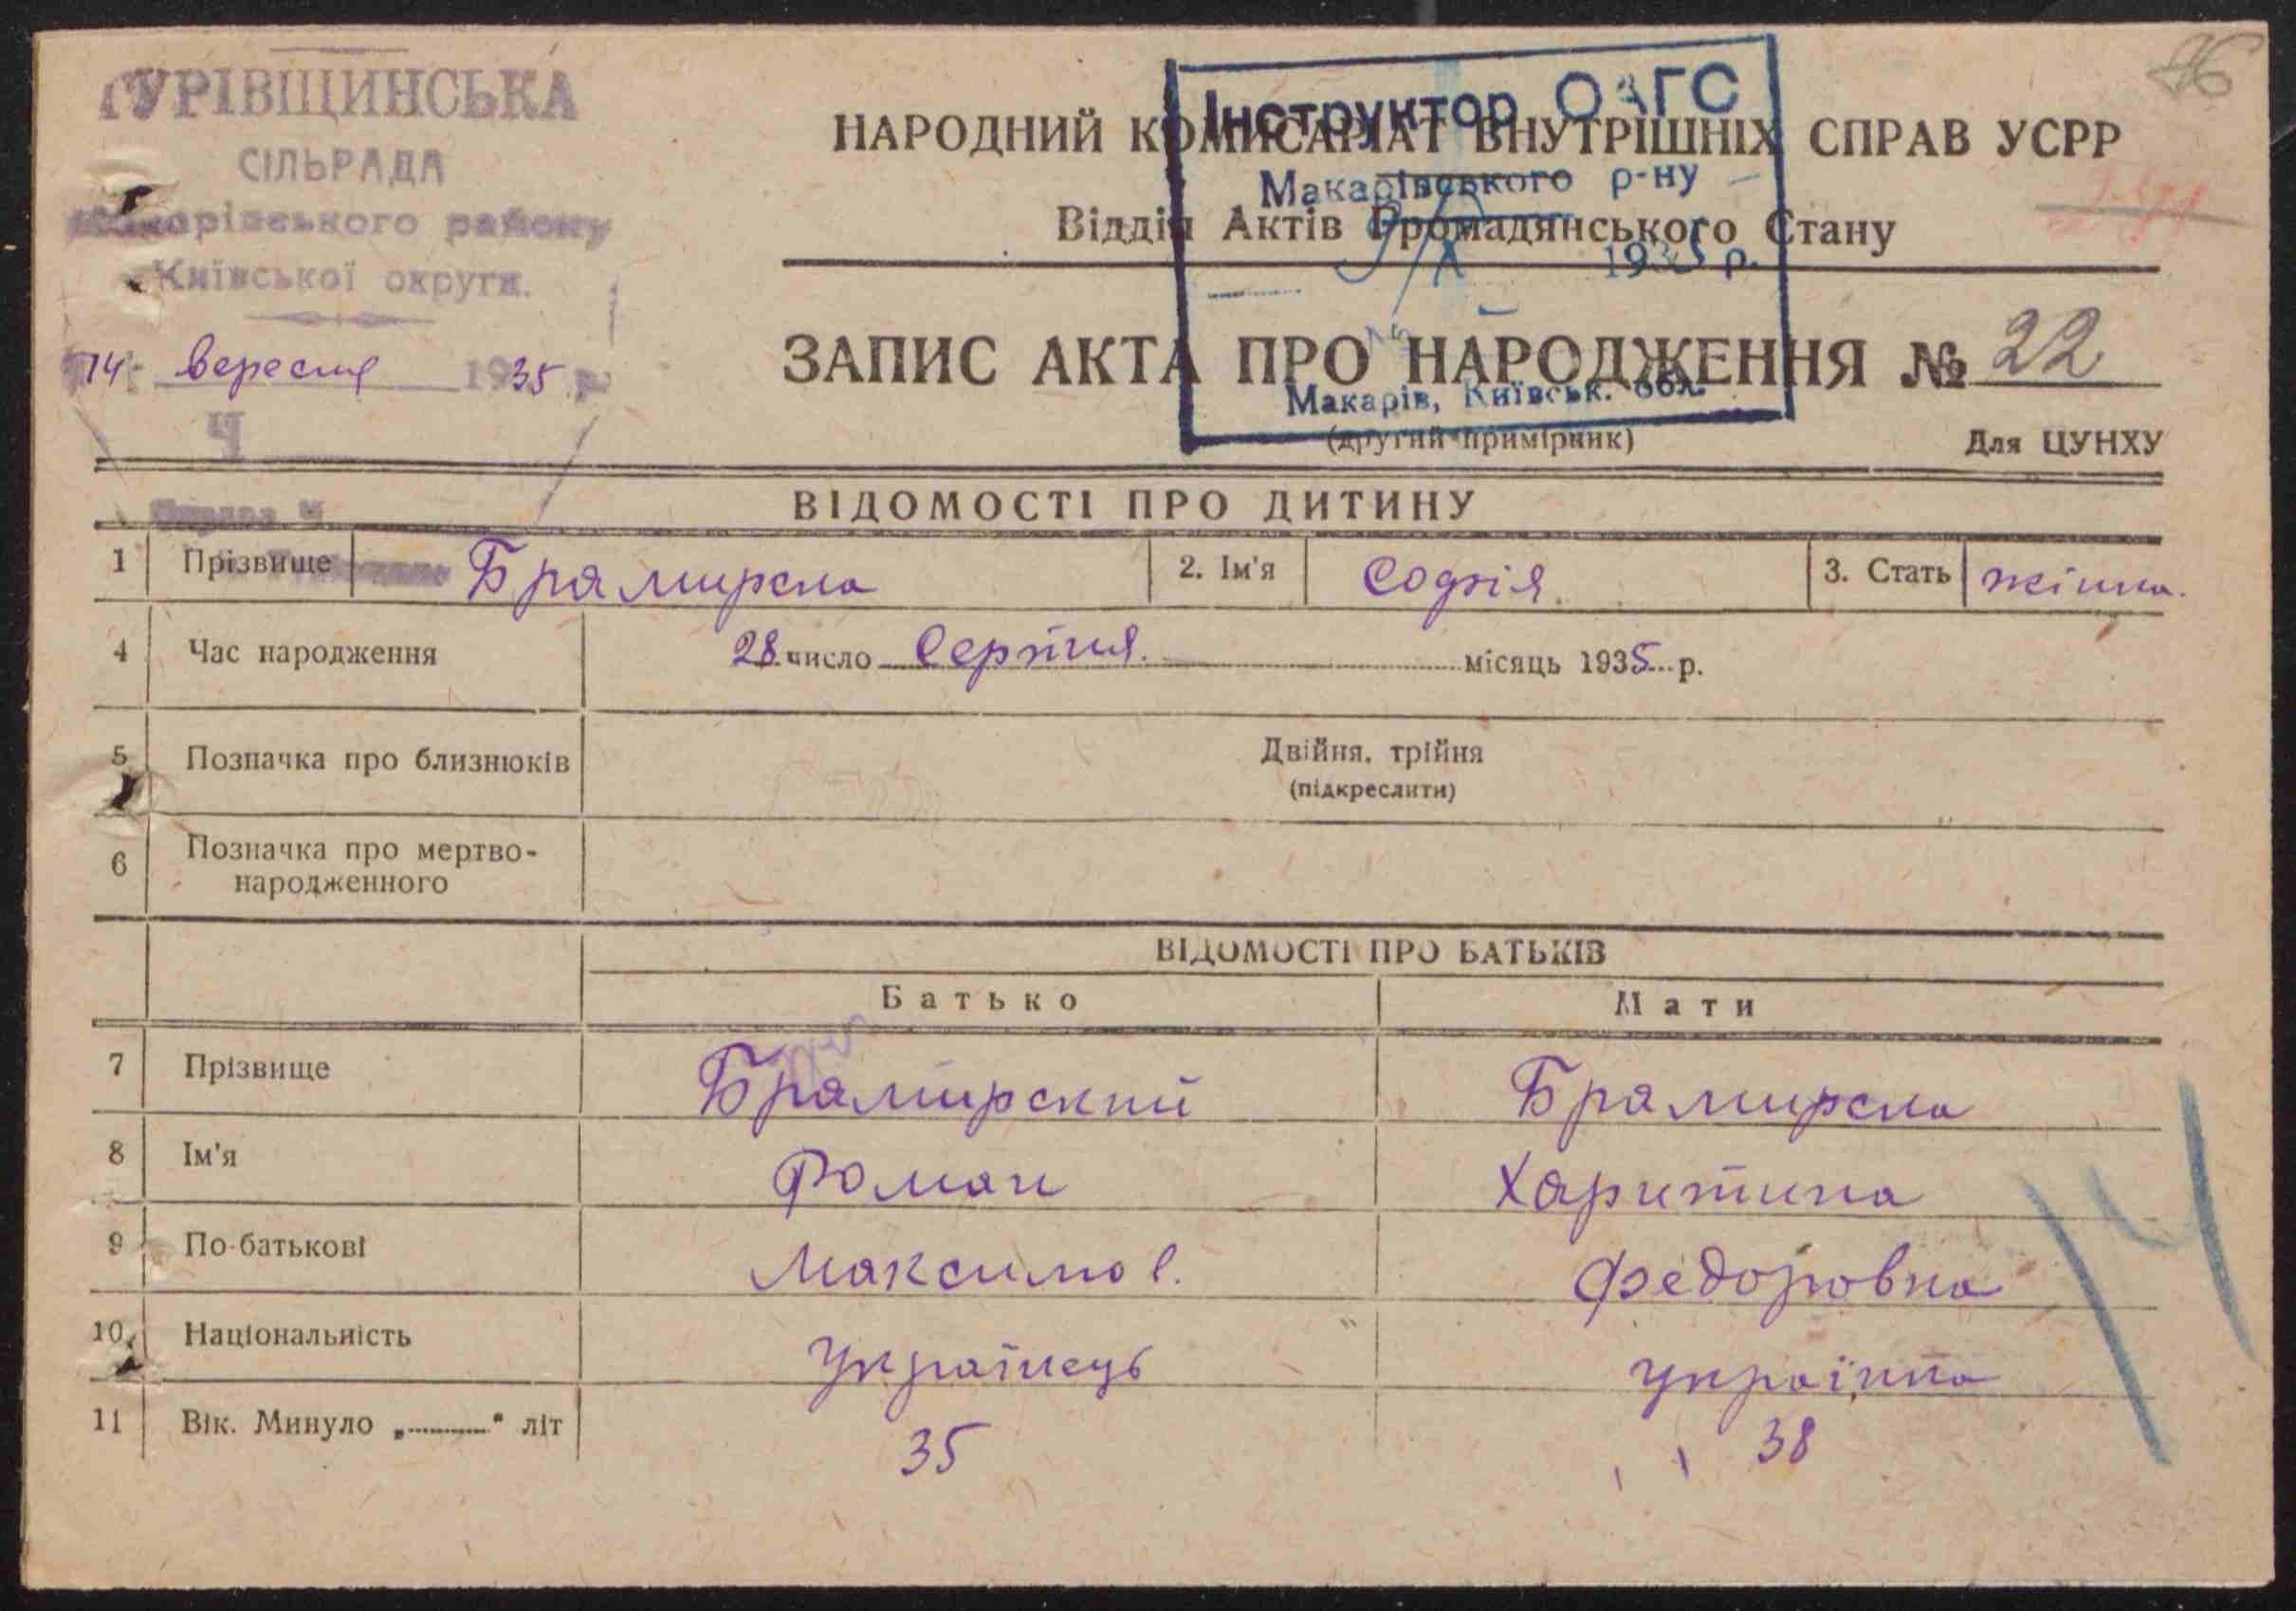 ГУРІВЩИНСЬКА
СІЛЬРАДА
Макарівського району
Київської округи.
14 вересня 1935 р.
Ч
46
НАРОДНИЙ КОМІСАРІАТ ВНУТРІШНІХ СПРАВ УСРР
Відділ Актів Громадянського Стану
Інструктор ОАГС
Макарівського р-ну
1935 р.
Макарів, Київськ. обл.
ЗАПИС АКТА ПРО НАРОДЖЕННЯ № 22
(другий примірник)
Для ЦУНХУ
ВІДОМОСТІ ПРО ДИТИНУ
1 Прізвище Брамирска 2. Ім'я Софія 3. Стать жінка.
4 Час народження 28 число Серпня. місяць 1935 р.
5 Позначка про близнюків Двійня, трійня
(підкреслити)
6 Позначка про мертво-
народженного
ВІДОМОСТІ ПРО БАТЬКІВ
Батько Мати
7 Прізвище Брамирский Брамирска
8 Ім'я Роман Харитина
9 По-батькові Максимов. Федоровна
10 Національність Українець українка
11 Вік. Минуло „ " літ 35 38
14